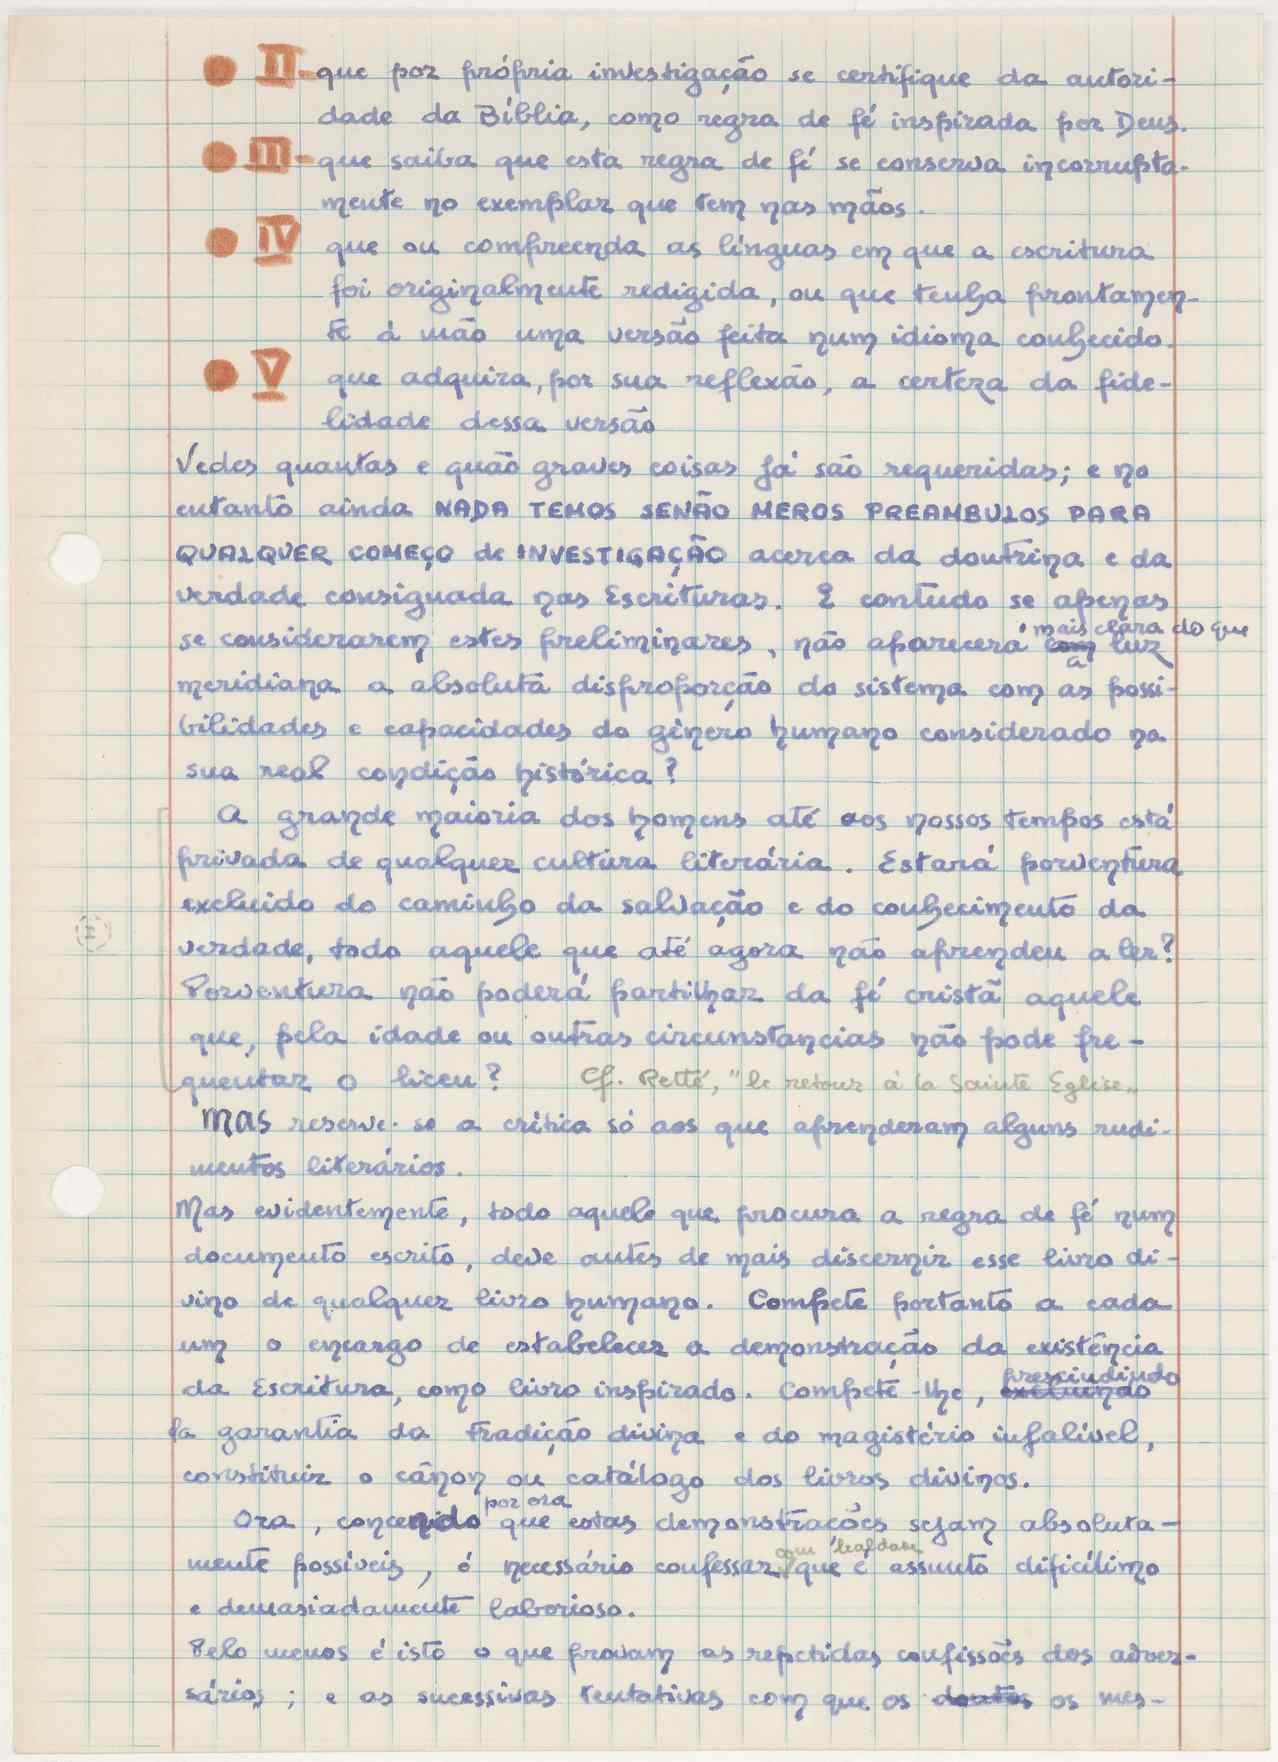 II - que por própria investigação se certifique da autori-
dade da Bíblia, como regra de fé inspirada por Deus.
III - que saiba que esta regra de fé se conserva incorrupta-
mente no exemplar que tem nas mãos.
IV que ou compreenda as línguas em que a escritura
foi originalmente redigida, ou que tenha prontamen-
te à mão uma versão feita num idioma conhecido.
V que adquira, por sua reflexão, a certeza da fide-
lidade dessa versão
Vedes quantas e quão graves coisas já são requeridas; e no
entanto ainda NADA TEMOS SENÃO MEROS PREAMBULOS PARA
QUALQUER COMEÇO de INVESTIGAÇÃO acerca da doutrina e da
verdade consignada nas Escrituras. E contudo se apenas
se considerarem estes preliminares, não aparecerá mais clara do que
com a luz
meridiana a absoluta disproporção do sistema com as possi-
bilidades e capacidades do género humano considerado na
sua real condição histórica?
A grande maioria dos homens até aos nossos tempos está
privada de qualquer cultura literária. Estará porventura
excluido do caminho da salvação e do conhecimento da
verdade, todo aquele que até agora não aprendeu a ler?
Porventura não poderá partilhar da fé cristã aquele
que, pela idade ou outras circunstancias não pode fre-
quentar o liceu? Cf. Retté, "le retour à la Sainte Eglise"
Mas reserve-se a crítica só aos que aprenderam alguns rudi-
mentos literários.
Mas evidentemente, todo aquele que procura a regra de fé num
documento escrito, deve antes de mais discernir esse livro di-
vino de qualquer livro humano. Compete portanto a cada
um o encargo de estabelecer a demonstração da existência
da Escritura, como livro inspirado. Compete-lhe, prescindindo
excluindo
da garantia da tradição divina e do magistério infalível,
constituir o cânon ou catálogo dos livros divinos.
por ora
Ora, concedido que estas demonstrações sejam absoluta-
com lealdade
mente possíveis, é necessário confessar que é assunto dificílimo
e demasiadamente laborioso.
Pelo menos é isto o que provam as repetidas confissões dos adver-
sários; e as sucessivas tentativas com que os doutos os mes-